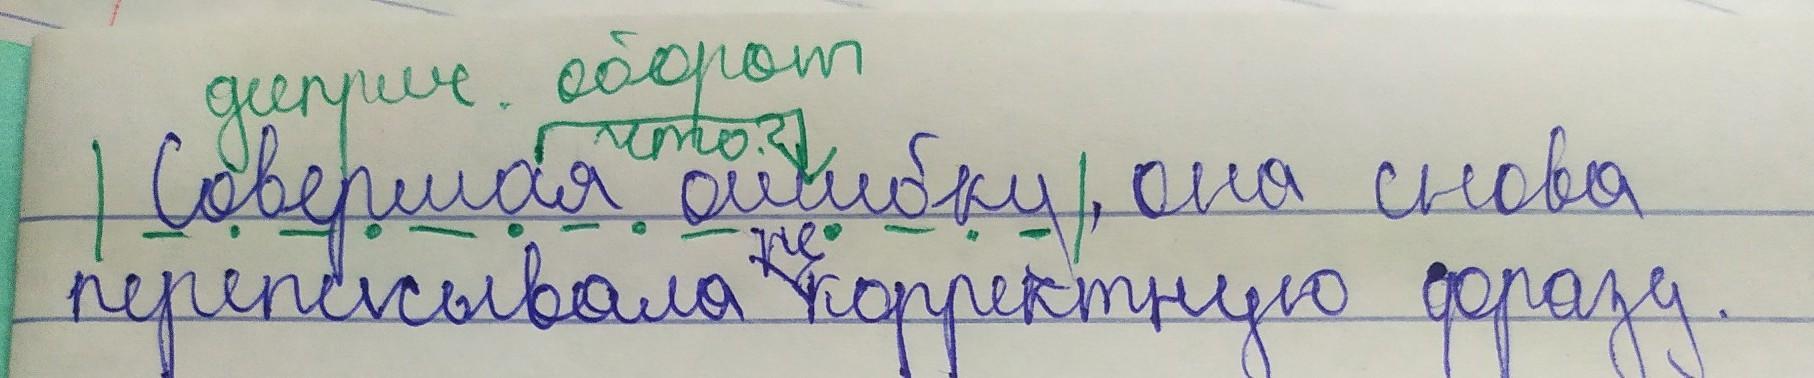 дееприч. оборот
что?
Совершая ошибку, она снова
не
переписывала корректную фразу.